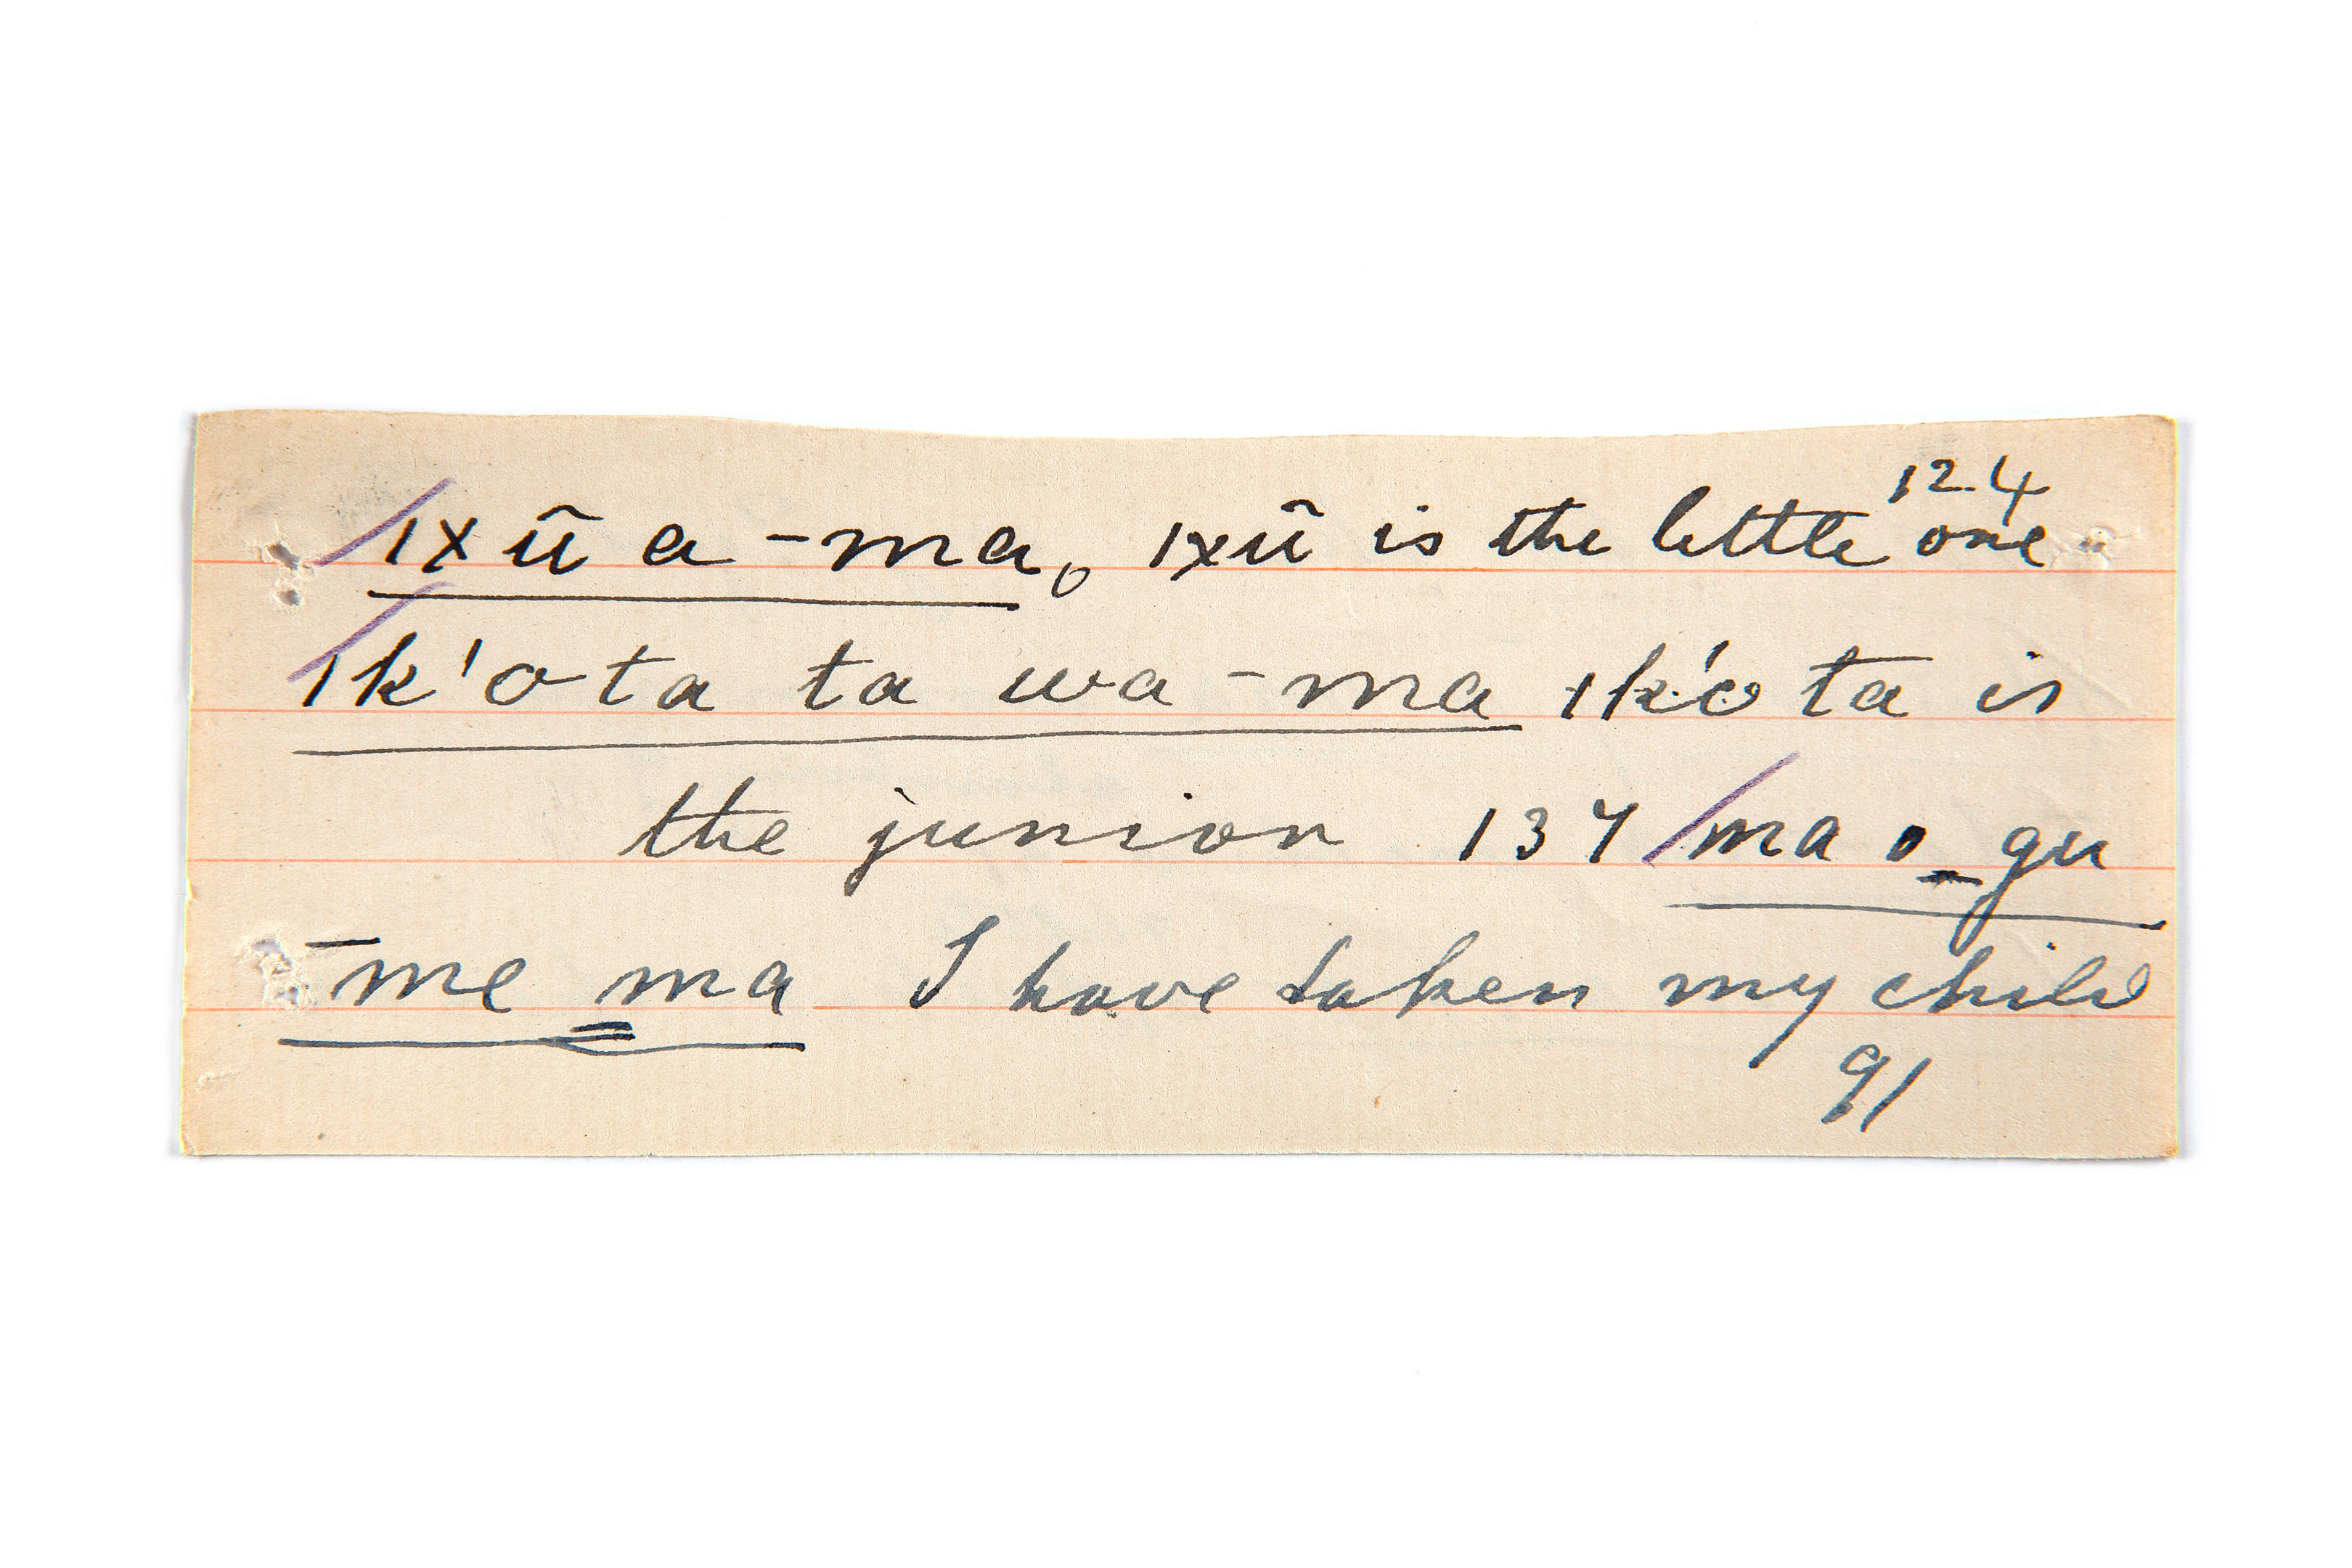 124
ıxũ a-ma, ıxũ is the little one
ık'o ta ta wa-ma ık'o ta is
the junior 137 ma o gu
me ma I have taken my child
91